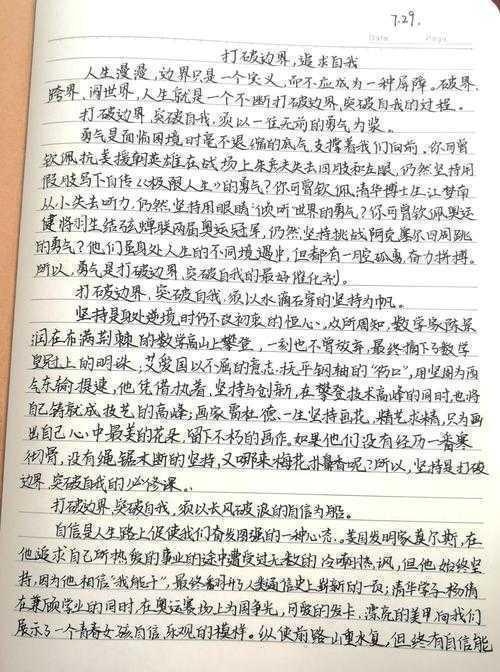 7.29.
Date Page
打破边界,追求自我
人生漫漫,边界只是一个定义,而不应成为一种屏障。破界、
跨界、阔世界,人生就是一个不断打破边界,突破自我的过程。
打破边界,突破自我,须以一往无前的勇气为桨。
勇气是面临困境时毫不退缩的底气,支撑着我们向前。你可曾
钦佩抗美援朝英雄在战场上朱彦夫失去四肢和左眼,仍然坚持用
假肢写下自传《极限人生》的勇气?你可曾钦佩清华博士生江梦南
从小失去听力,仍然坚持用眼睛"倾听世界的勇气?你可曾钦佩奥运
健将羽生结弦蝉联两届奥运冠军,仍然坚持挑战阿克塞尔四周跳
的勇气?他们虽身处人生的不同境遇中,但都有一腔孤勇,奋力拼搏。
所以,勇气是打破边界,突破自我的最好催化剂。
打破边界,突破自我,须以水滴石穿的坚持为帆。
坚持是身处逆境时仍不改初衷的恒心。众所周知,数学家陈景
润在布满荆棘的数学高山上攀登,一刻也不曾放弃,最终摘下了数学
皇冠上的明珠,艾爱国以不屈的意志,抚平钢轴的"伤口",用坚固为西
气东输提速,他凭借执着,坚持与创新,在攀登技术高峰的同时,也将
自己铸就成技艺的高峰;画家雷杜德一生坚持画花,精艺求精,只为画
出自己心中最美的花朵,留下不朽的画作。如果他们没有经历一番寒
彻骨,没有绳锯木断的坚持,又哪来梅花扑鼻香呢?所以,坚持是打破
边界,突破自我的必修课。
打破边界,突破自我,须以长风破浪的自信为船。
自信是人生路上促使我们奋发图强的一种心态。美国发明家莫尔斯,在
他追求自己所热爱的事业的途中遭受过无数的冷嘲热讽,但他始终坚
持,因为他相信"我能行",最终翻开了人类通信史上崭新的一页;清华学子杨倩
在兼顾学业的同时,在奥运赛场上为国争光,可爱的发卡,漂亮的美甲向我们
展示了一个青春女孩自信、乐观的模样。纵使前路山重水复,但终有自信能